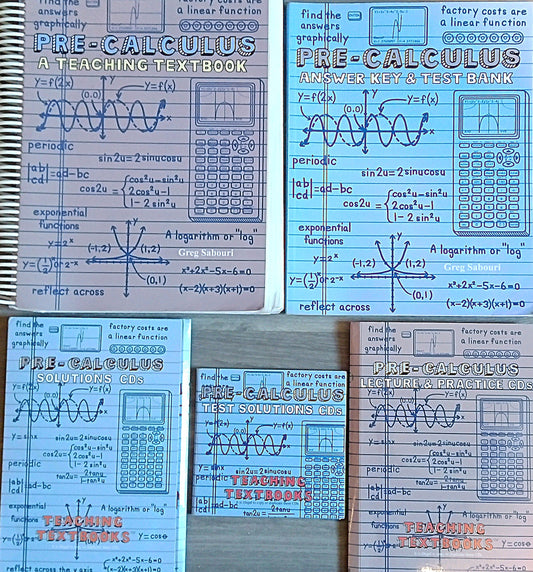 find the
answers
graphically
factory costs are
a linear function
PRE-CALCULUS
A TEACHING TEXTBOOK
y=f(2x)
(0,0)
y=f(x)
x
periodic
sin2u=2sinucosu
|ab|
|cd|=ad-bc
cos2u={cos²u-sin²u
2cos²u-1
1-2sin²u
exponential
functions
y
A logarithm or "log"
y=2ˣ
(-1,2)
(1,2)
Greg Sabouri
y=(½)ˣor 2⁻ˣ
x³+2x²-5x-6=0
(0,1)
(x-2)(x+3)(x+1)=0
reflect across
find the
answers
graphically
ENTER
factory costs are
a linear function
PRE-CALCULUS
ANSWER KEY & TEST BANK
y=f(2x)
(0,0)
y
y=f(x)
x
periodic
sin2u=2sinucosu
|ab|
|cd|=ad-bc
cos2u={cos²u-sin²u
2cos²u-1
1-2sin²u
exponential
functions
y
A logarithm or "log"
y=2ˣ
(-1,2)
(1,2)
Greg Sabouri
y=(½)ˣor 2⁻ˣ
x³+2x²-5x-6=0
(0,1)
(x-2)(x+3)(x+1)=0
reflect across
find the
answers
graphically
factory costs are
a linear function
PRE-CALCULUS
SOLUTIONS CDs
y=f(2x)
y=f(x)
y=sinx
sin2u=2sinucosu
cos2u={cos²u-sin²u
2cos²u-1
1-2sin²u
periodic
tan2u=2tanu
1-tan²u
|ab|
|cd|=ad-bc
exponential
functions
y
A logarithm or "log"
TEACHING
TEXTBOOKS
y=cosθ
x³+2x²-5x-6=0
reflect across the y axis
(x-2)(x+3)(x+1)=0
find the
answers
graphically
factory costs are
a linear function
PRE-CALCULUS
TEST SOLUTIONS CDs
y=f(x)
y=sinx
sin2u=2sinucosu
periodic
TEACHING
TEXTBOOKS
|ab|
|cd|=ad-bc
tan2u=2tanu
find the
answers
graphically
factory costs are
a linear function
PRE-CALCULUS
LECTURE & PRACTICE CDs
y=f(2x)
y=f(x)
y=sinx
sin2u=2sinucosu
cos2u={cos²u-sin²u
2cos²u-1
1-2sin²u
periodic
tan2u=2tanu
1-tan²u
|ab|
|cd|=ad-bc
exponential
functions
y
A logarithm or "log"
TEACHING
TEXTBOOKS
y=cosθ
x³+2x²-5x-6=0